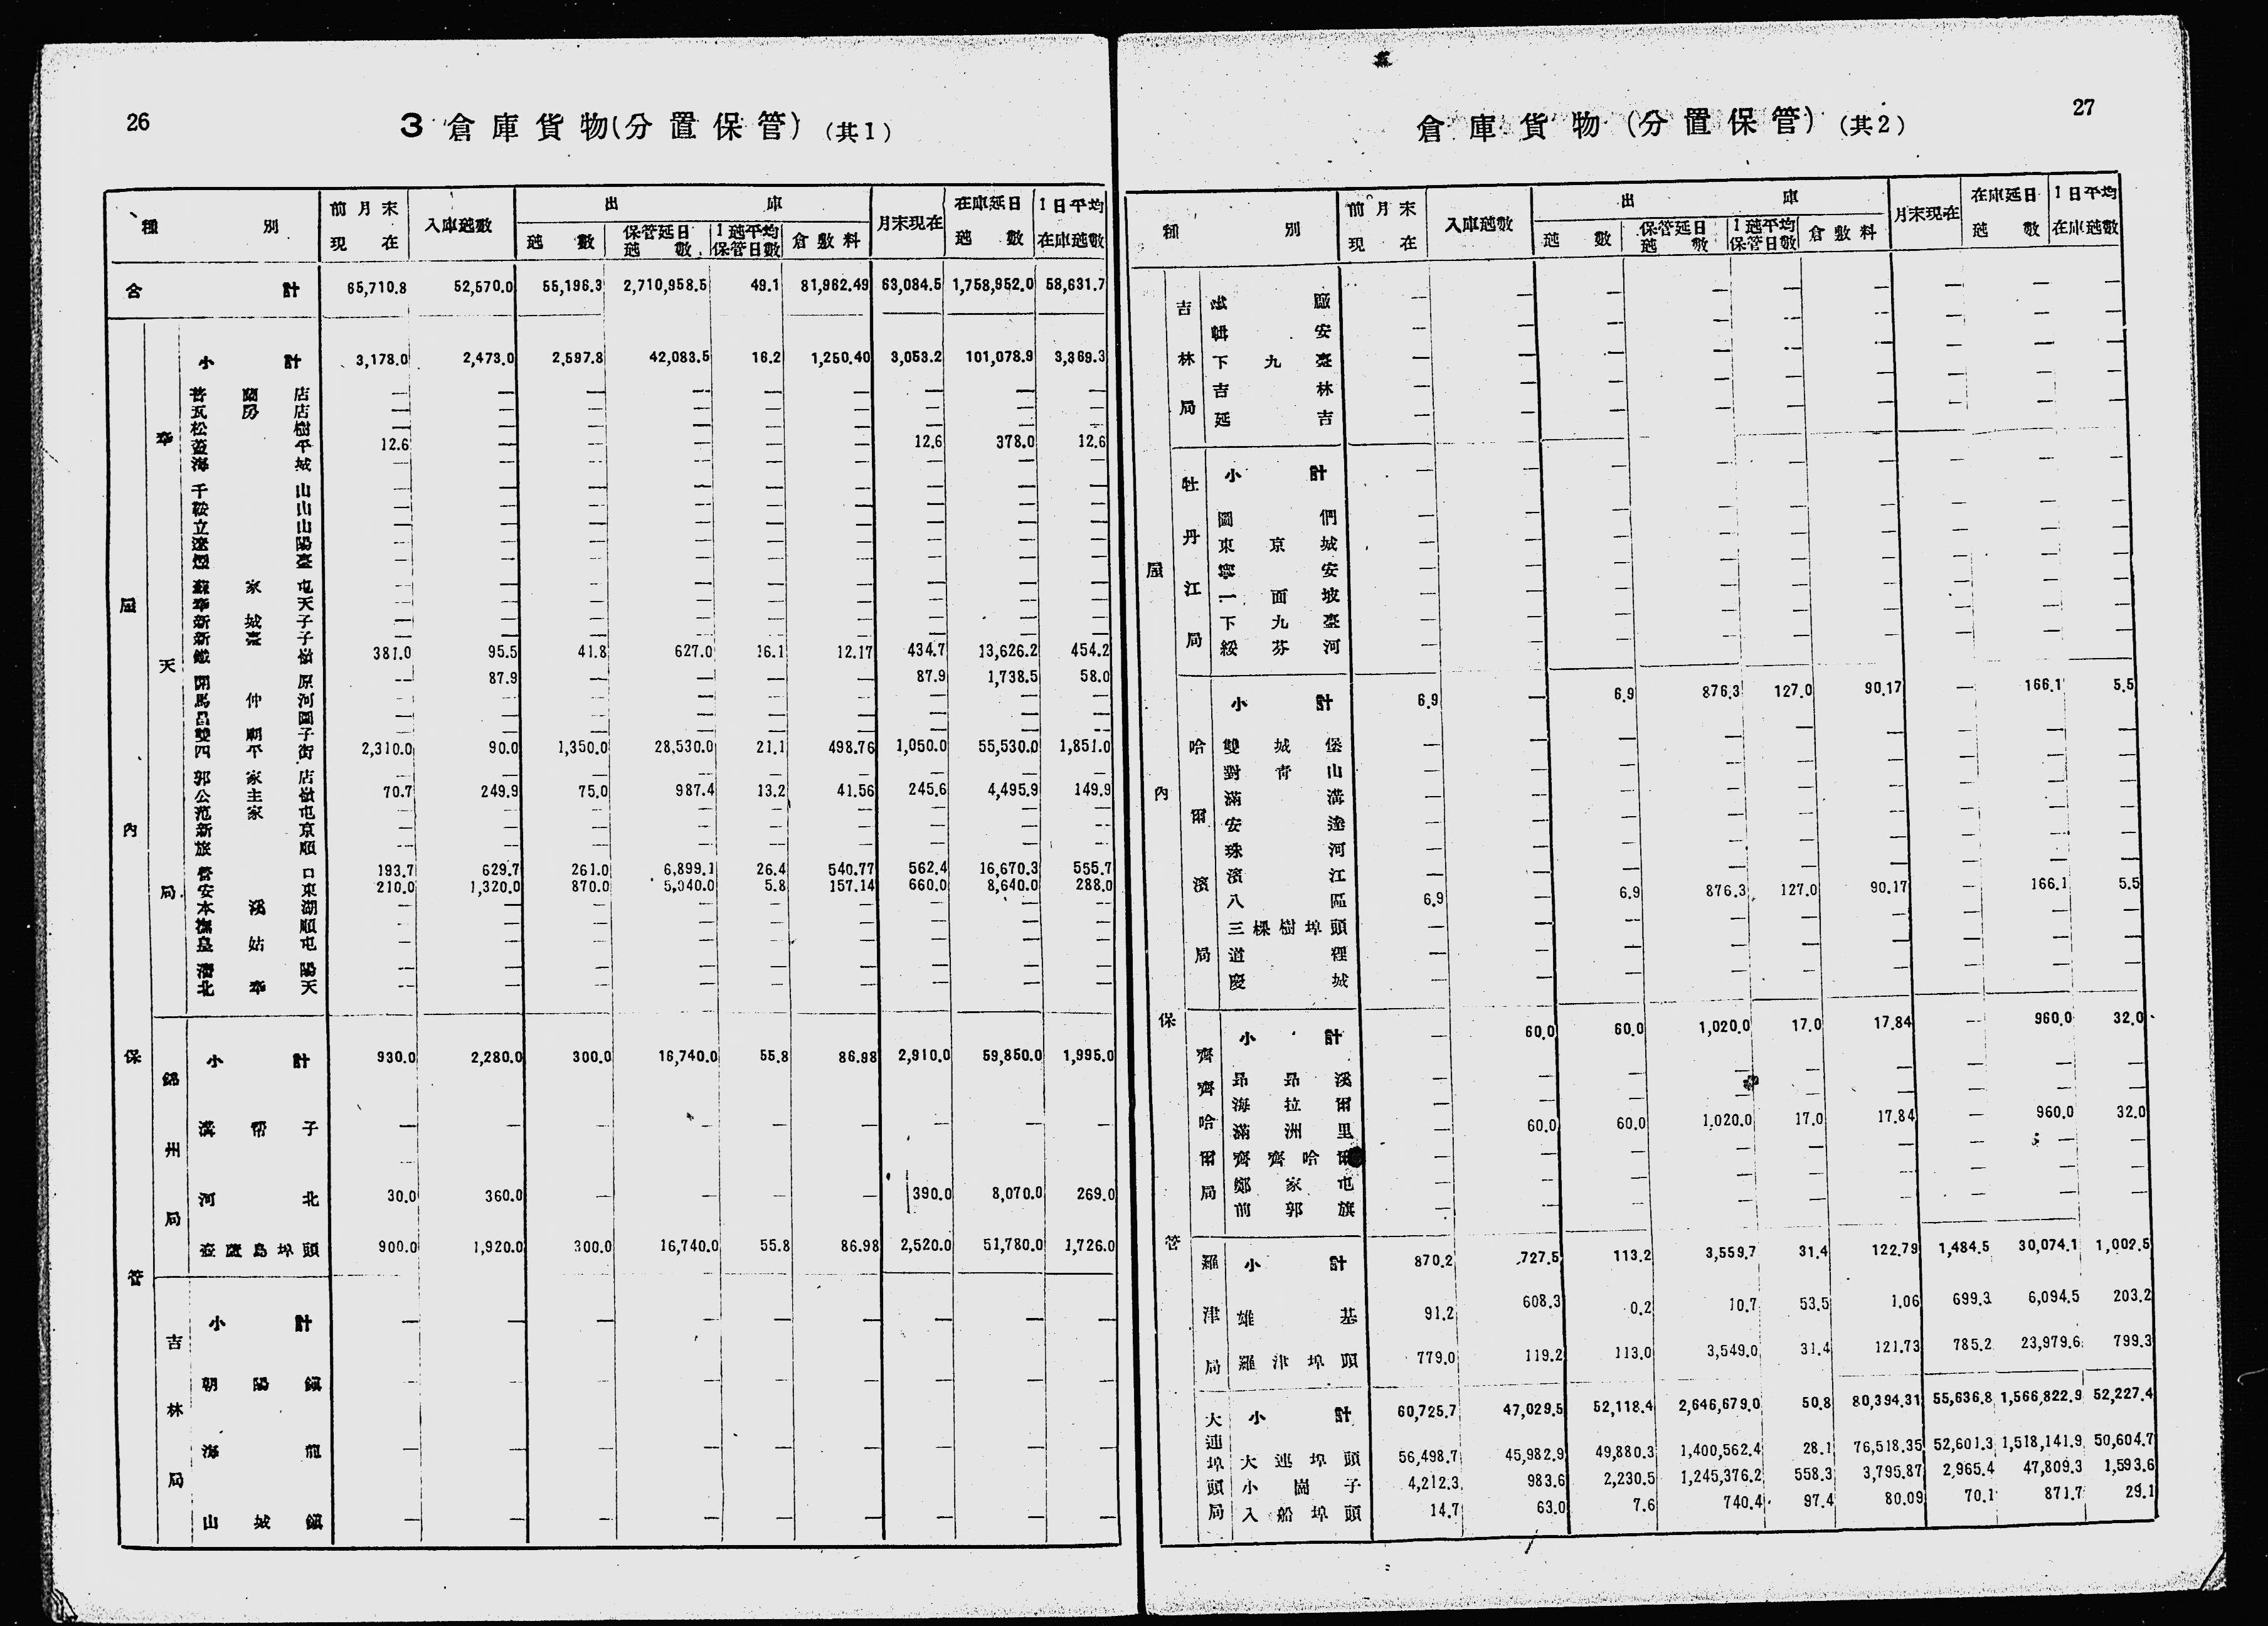 26
3 倉庫貨物(分置保管) (其1)
種別 前月末現在 入庫瓲數 出庫 月末現在 在庫延日瓲數 1日平均在庫瓲數
瓲數 保管延日瓲數 1瓲平均保管日數 倉敷料
合計 65,710.8 52,570.0 55,196.3 2,710,958.5 49.1 81,962.49 63,084.5 1,758,952.0 58,631.7
局內保管
奉天局
小計 3,178.0 2,473.0 2,597.8 42,083.5 16.2 1,250.40 3,053.2 101,078.9 3,369.3
普蘭店 — — — — — — — — —
瓦房店 — — — — — — — — —
松樹 — — — — — — — — —
蓋平 12.6 — — — — — 12.6 378.0 12.6
海城 — — — — — — — — —
千山 — — — — — — — — —
鞍山 — — — — — — — — —
立山 — — — — — — — — —
遼陽 — — — — — — — — —
煙臺 — — — — — — — — —
蘇家屯 — — — — — — — — —
奉天 — — — — — — — — —
新城子 — — — — — — — — —
新臺子 — — — — — — — — —
鐵嶺 381.0 95.5 41.8 627.0 16.1 12.17 434.7 13,626.2 454.2
開原 — 87.9 — — — — 87.9 1,738.5 58.0
馬仲河 — — — — — — — — —
昌圖 — — — — — — — — —
雙廟子 — — — — — — — — —
四平街 2,310.0 90.0 1,350.0 28,530.0 21.1 498.76 1,050.0 55,530.0 1,851.0
郭家店 — — — — — — — — —
公主嶺 70.7 249.9 75.0 987.4 13.2 41.56 245.6 4,495.9 149.9
范家屯 — — — — — — — — —
新京 — — — — — — — — —
旅順 — — — — — — — — —
營口 193.7 629.7 261.0 6,899.1 26.4 540.77 562.4 16,670.3 555.7
安東 210.0 1,320.0 870.0 5,040.0 5.8 157.14 660.0 8,640.0 288.0
本溪湖 — — — — — — — — —
撫順 — — — — — — — — —
皇姑屯 — — — — — — — — —
瀋陽 — — — — — — — — —
北奉天 — — — — — — — — —
錦州局
小計 930.0 2,280.0 300.0 16,740.0 55.8 86.98 2,910.0 59,850.0 1,995.0
溝幇子 — — — — — — — — —
河北 30.0 360.0 — — — — 390.0 8,070.0 269.0
壺蘆島埠頭 900.0 1,920.0 300.0 16,740.0 55.8 86.98 2,520.0 51,780.0 1,726.0
吉林局
小計 — — — — — — — — —
朝陽鎭 — — — — — — — — —
海龍 — — — — — — — — —
山城鎭 — — — — — — — — —
27
倉庫貨物 (分置保管) (其2)
種別 前月末現在 入庫瓲數 出庫 月末現在 在庫延日瓲數 1日平均在庫瓲數
瓲數 保管延日瓲數 1瓲平均保管日數 倉敷料
局內保管
吉林局
廠 — — — — — — — — —
輯安 — — — — — — — — —
下九臺 — — — — — — — — —
吉林 — — — — — — — — —
延吉 — — — — — — — — —
牡丹江局
小計 — — — — — — — — —
圖們 — — — — — — — — —
東京城 — — — — — — — — —
寧安 — — — — — — — — —
一面坡 — — — — — — — — —
下九臺 — — — — — — — — —
綏芬河 — — — — — — — — —
哈爾濱局
小計 6.9 — 6.9 876.3 127.0 90.17 — 166.1 5.5
雙城堡 — — — — — — — — —
對靑山 — — — — — — — — —
滿溝 — — — — — — — — —
安達 — — — — — — — — —
珠河 — — — — — — — — —
濱江 — — — — — — — — —
八區 6.9 — 6.9 876.3 127.0 90.17 — 166.1 5.5
三棵樹埠頭 — — — — — — — — —
道裡 — — — — — — — — —
慶城 — — — — — — — — —
齊齊哈爾局
小計 — 60.0 60.0 1,020.0 17.0 17.84 — 960.0 32.0
昂昂溪 — — — — — — — — —
海拉爾 — — — — — — — — —
滿洲里 — 60.0 60.0 1,020.0 17.0 17.84 — 960.0 32.0
齊齊哈爾 — — — — — — — — —
鄭家屯 — — — — — — — — —
前郭旗 — — — — — — — — —
羅津局
小計 870.2 727.5 113.2 3,559.7 31.4 122.79 1,484.5 30,074.1 1,002.5
雄基 91.2 608.3 0.2 10.7 53.5 1.06 699.3 6,094.5 203.2
羅津埠頭 779.0 119.2 113.0 3,549.0 31.4 121.73 785.2 23,979.6 799.3
大連埠頭局
小計 60,725.7 47,029.5 52,118.4 2,646,679.0 50.8 80,394.31 55,636.8 1,566,822.9 52,227.4
大連埠頭 56,498.7 45,982.9 49,880.3 1,400,562.4 28.1 76,518.35 52,601.3 1,518,141.9 50,604.7
小崗子 4,212.3 983.6 2,230.5 1,245,376.2 558.3 3,795.87 2,965.4 47,809.3 1,593.6
入船埠頭 14.7 63.0 7.6 740.4 97.4 80.09 70.1 871.7 29.1